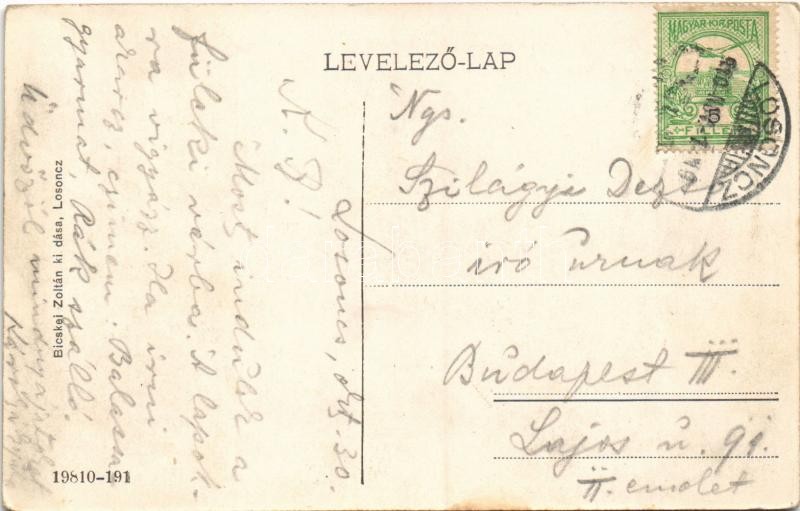 LEVELEZŐ-LAP
MAGYAR·KIR·POSTA
FILLÉR
LOSONCZ
Ngs.
Szilágyi Dezső
iró úrnak
Budapest III.
Lajos u. 99.
II. emelet
Losonc, 30.
K. B!
Most indulok a
füleki várba. A lapok-
ra vigyázz. Ha irni
akarsz, cimem: Balassa
gyarmat, Rák szálló.
Üdvözöl mindnyájatokat
Bicskei Zoltán kiadása, Losoncz
19810-191